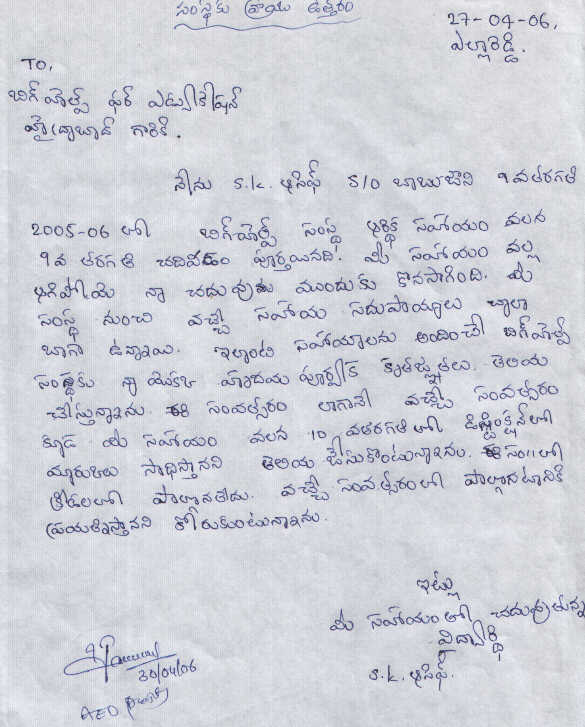 సంస్థకు వ్రాయు ఉత్తరం
27-04-06,
ఎల్లారెడ్డి.
TO,
బిగ్ హెల్ప్ ఫర్ ఎడ్యుకేషన్
హైద్రాబాద్ గారికి.
నేను S.K. ఆసిఫ్ S/O బాబుజాని 9వ తరగతి
2005-06 లో బిగ్ హెల్ప్ సంస్థ ఆర్థిక సహాయం వలన
9వ తరగతి చదివడం పూర్తయినది. మీ సహాయం వల్ల
ఆగిపోయె నా చదువు ముందుకు కొనసాగింది. మీ
సంస్థ నుంచి వచ్చే సహాయ సదుపాయాలు చాలా
బాగా ఉన్నాయి. ఇలాంటి సహాయాలను అందించే బిగ్ హెల్ప్
సంస్థకు నా యొక్క హృదయ పూర్వక కృతజ్ఞతలు. తెలియ
చేస్తున్నాను. ఈ సంవత్సరం లాగానే వచ్చే సంవత్సరం
కూడ మీ సహాయం వలన 10 వతరగతిలో డిస్టింక్షన్ లో
మార్కులు సాధిస్తానని తెలియ జేసుకొంటున్నాను. ఈ సం॥లో
క్రీడలలో పాల్గొనలేదు. వచ్చే సంవత్సరంలో పాల్గొనటానికి
ప్రయత్నిస్తానని కోరుకుంటున్నాను.
ఇట్లు
మీ సహాయంతో చదువుతున్న
విద్యార్థి
S.K. ఆసిఫ్.
30/04/06
AEO